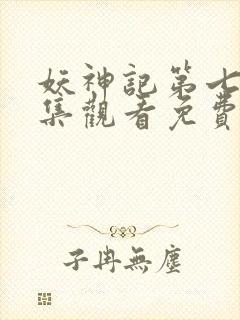 妖神記第七
集觀看免費
子冉無塵